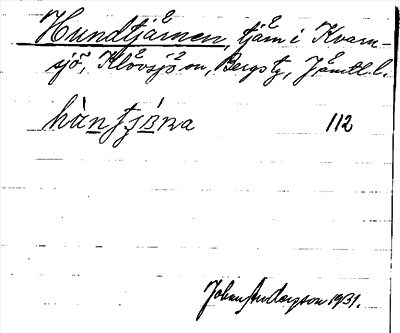 Hundtjärnen, tjärn i Kvarn-
sjö, Klövsjö sn, Bergs tg, Jämtl. l.
hàntjäna 112
Johan Anderson 1931.